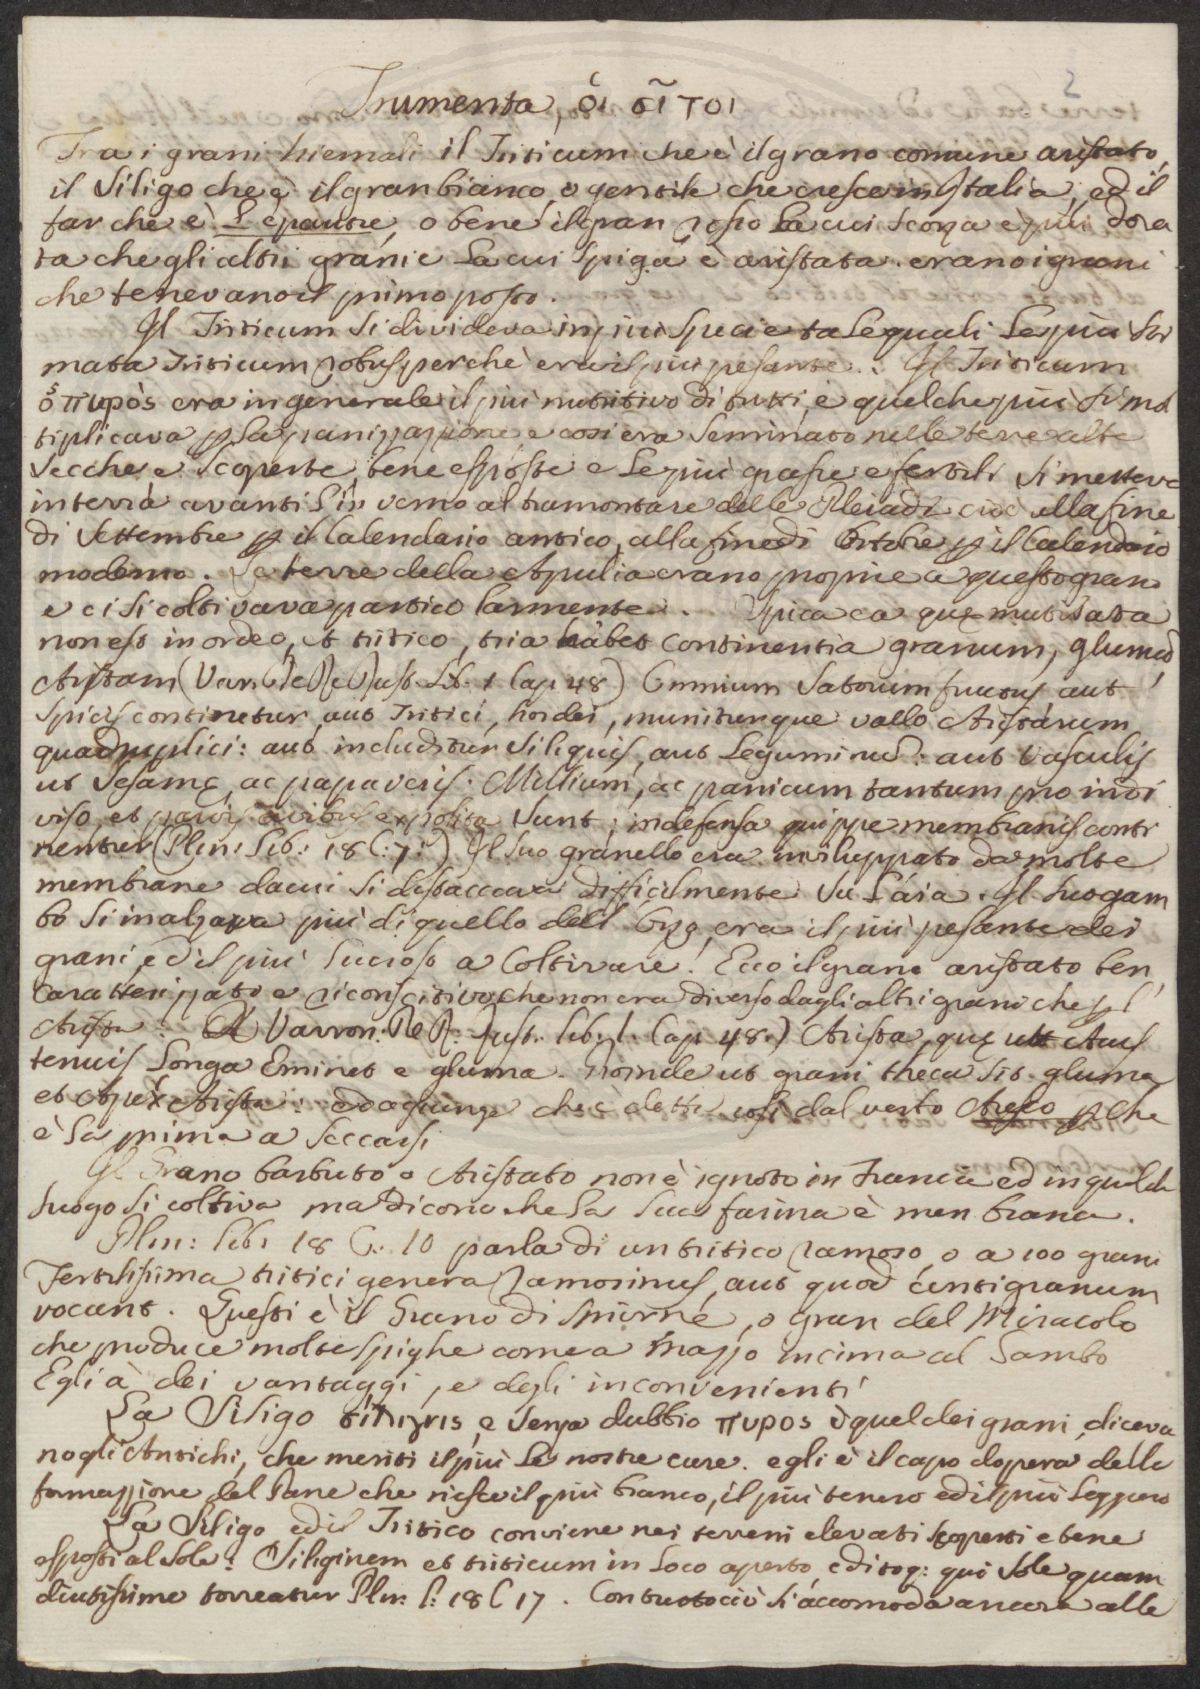 Frumenta, ὁι σῖτοι
Fra i grani hiemali il Triticum che è il grano comune aristato,
il Siligo che è il gran bianco, o gentile che cresce in Italia, ed il
far che è L'epautre, o bene il gran rosso la cui scorza è più dora
ta che gli altri grani e la cui spiga è aristata. erano i grani
che tenevano il primo posto.
Il Triticum si divideva in più specie tra le quali la più sti
mata Triticum robus perchè era il più pesante. Il Triticum
ὁ πυρὸς era in generale il più nutritivo di tutti, e quel che più si mol
tiplicava p la panizzazione e così era seminato nelle terre alte
secche e scoperte, bene esposte e le più grasse, e fertili si metteva
in terra avanti l'in verno al tramontare delle Pleiadi cioè alla fine
di Settembre p il Calendario antico, alla fine di Ottobre p il Calendario
moderno. Le terre della Apulia erano proprie a questo gran
e ci si coltivava partico larmente. Spica ea quę mutilata
non est in ordeo, et tritico, tria habet continentia granum, glumā,
Aristam (Varr. De Re Rust. Lib. 1 Cap. 48) Omnium Satorum fructus aut
spicis continetur, aut Tritici, hordei, muniturque vallo Aristarum
quadruplici: aut includitur Siliquis, aut Leguminū: aut Vasculis
ut Sesamę, ac papaveris. Milium, ac panicum tantum pro indi
viso, et parvis avibus exposita sunt; indefensa quippe membranis conti
nentur (Plin: Lib: 18 C: 7:) Il suo granello era inviluppato da molte
membrane da cui si distaccava difficilmente su l'áia. Il suo gam
bo si inalzava più di quello dell'Orzo, era il più pesante dei
grani, ed il più lucioso a Coltivare. Ecco il grano aristato ben
caratterizzato e riconoscitivo che non era diverso dagli altri grani che p l'
Arista. Varron. Re R. Rust. Lib. 1. Cap 48.) Arista, quę ut Acus
tenuis Longa Eminet e gluma. Proinde ut grani theca sit gluma
et Apex Arista: ed aggiunge che è detta così dal verbo Aresco p che
è la prima a seccarsi
Il Grano barbuto o Aristato non è ignoto in Francia ed in qualch
luogo si coltiva ma dicono che la sua farina è men bianca.
Plin: Lib: 18 C: 10 parla di un tritico ramoso, o a 100 grani
Fertilissima tritici genera ramosimus, aut quod centigranum
vocant. Questi è il Grano di Smirne, o gran del Miracolo
che produce molte spighe come a mazzo in cima al Gambo
Egli à dei vantaggi, e degli inconvenienti
La Siligo σίλιγνις, e senza dubbio πυρος è quel dei grani, diceva
no gli Antichi, che meriti il più le nostre cure. egli è il capo dopera della
formazione del Pane che riesce il più bianco, il più tenero ed il più leggero
La Siligo ed il Tritico conviene nei terreni elevati scoperti e bene
esposti al Sole: Siliginem et triticum in loco aperto, editoq: qui Sole quam
diutissime torreatur Plin: L: 18 C 17. Contuttociò si accomoda ancora alle